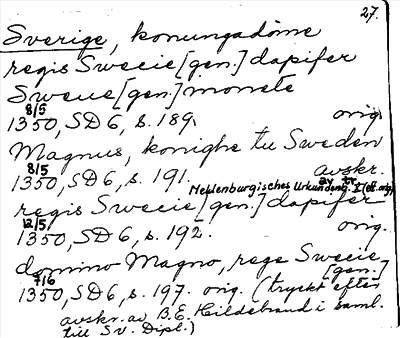 27.
Sverige, konungadöme
regis Swecie [gen.] dapifer
Swecie [gen.] monete
8/5
1350, SD 6, s. 189. orig.
Magnus, konighe tu Sweden
8/5
1350, SD 6, s. 191. avskr.
av tr.
Meklenburgisches Urkundenb. I (eft. orig.)
regis Swecie [gen.] dapifer
12/5
1350, SD 6, s. 192. orig.
domino Magno, rege Swecie
[gen.]
7/6
1350, SD 6, s. 197. orig. (tryckt efter
avskr. av B.E. Hildebrand i saml.
till Sv. Dipl.)